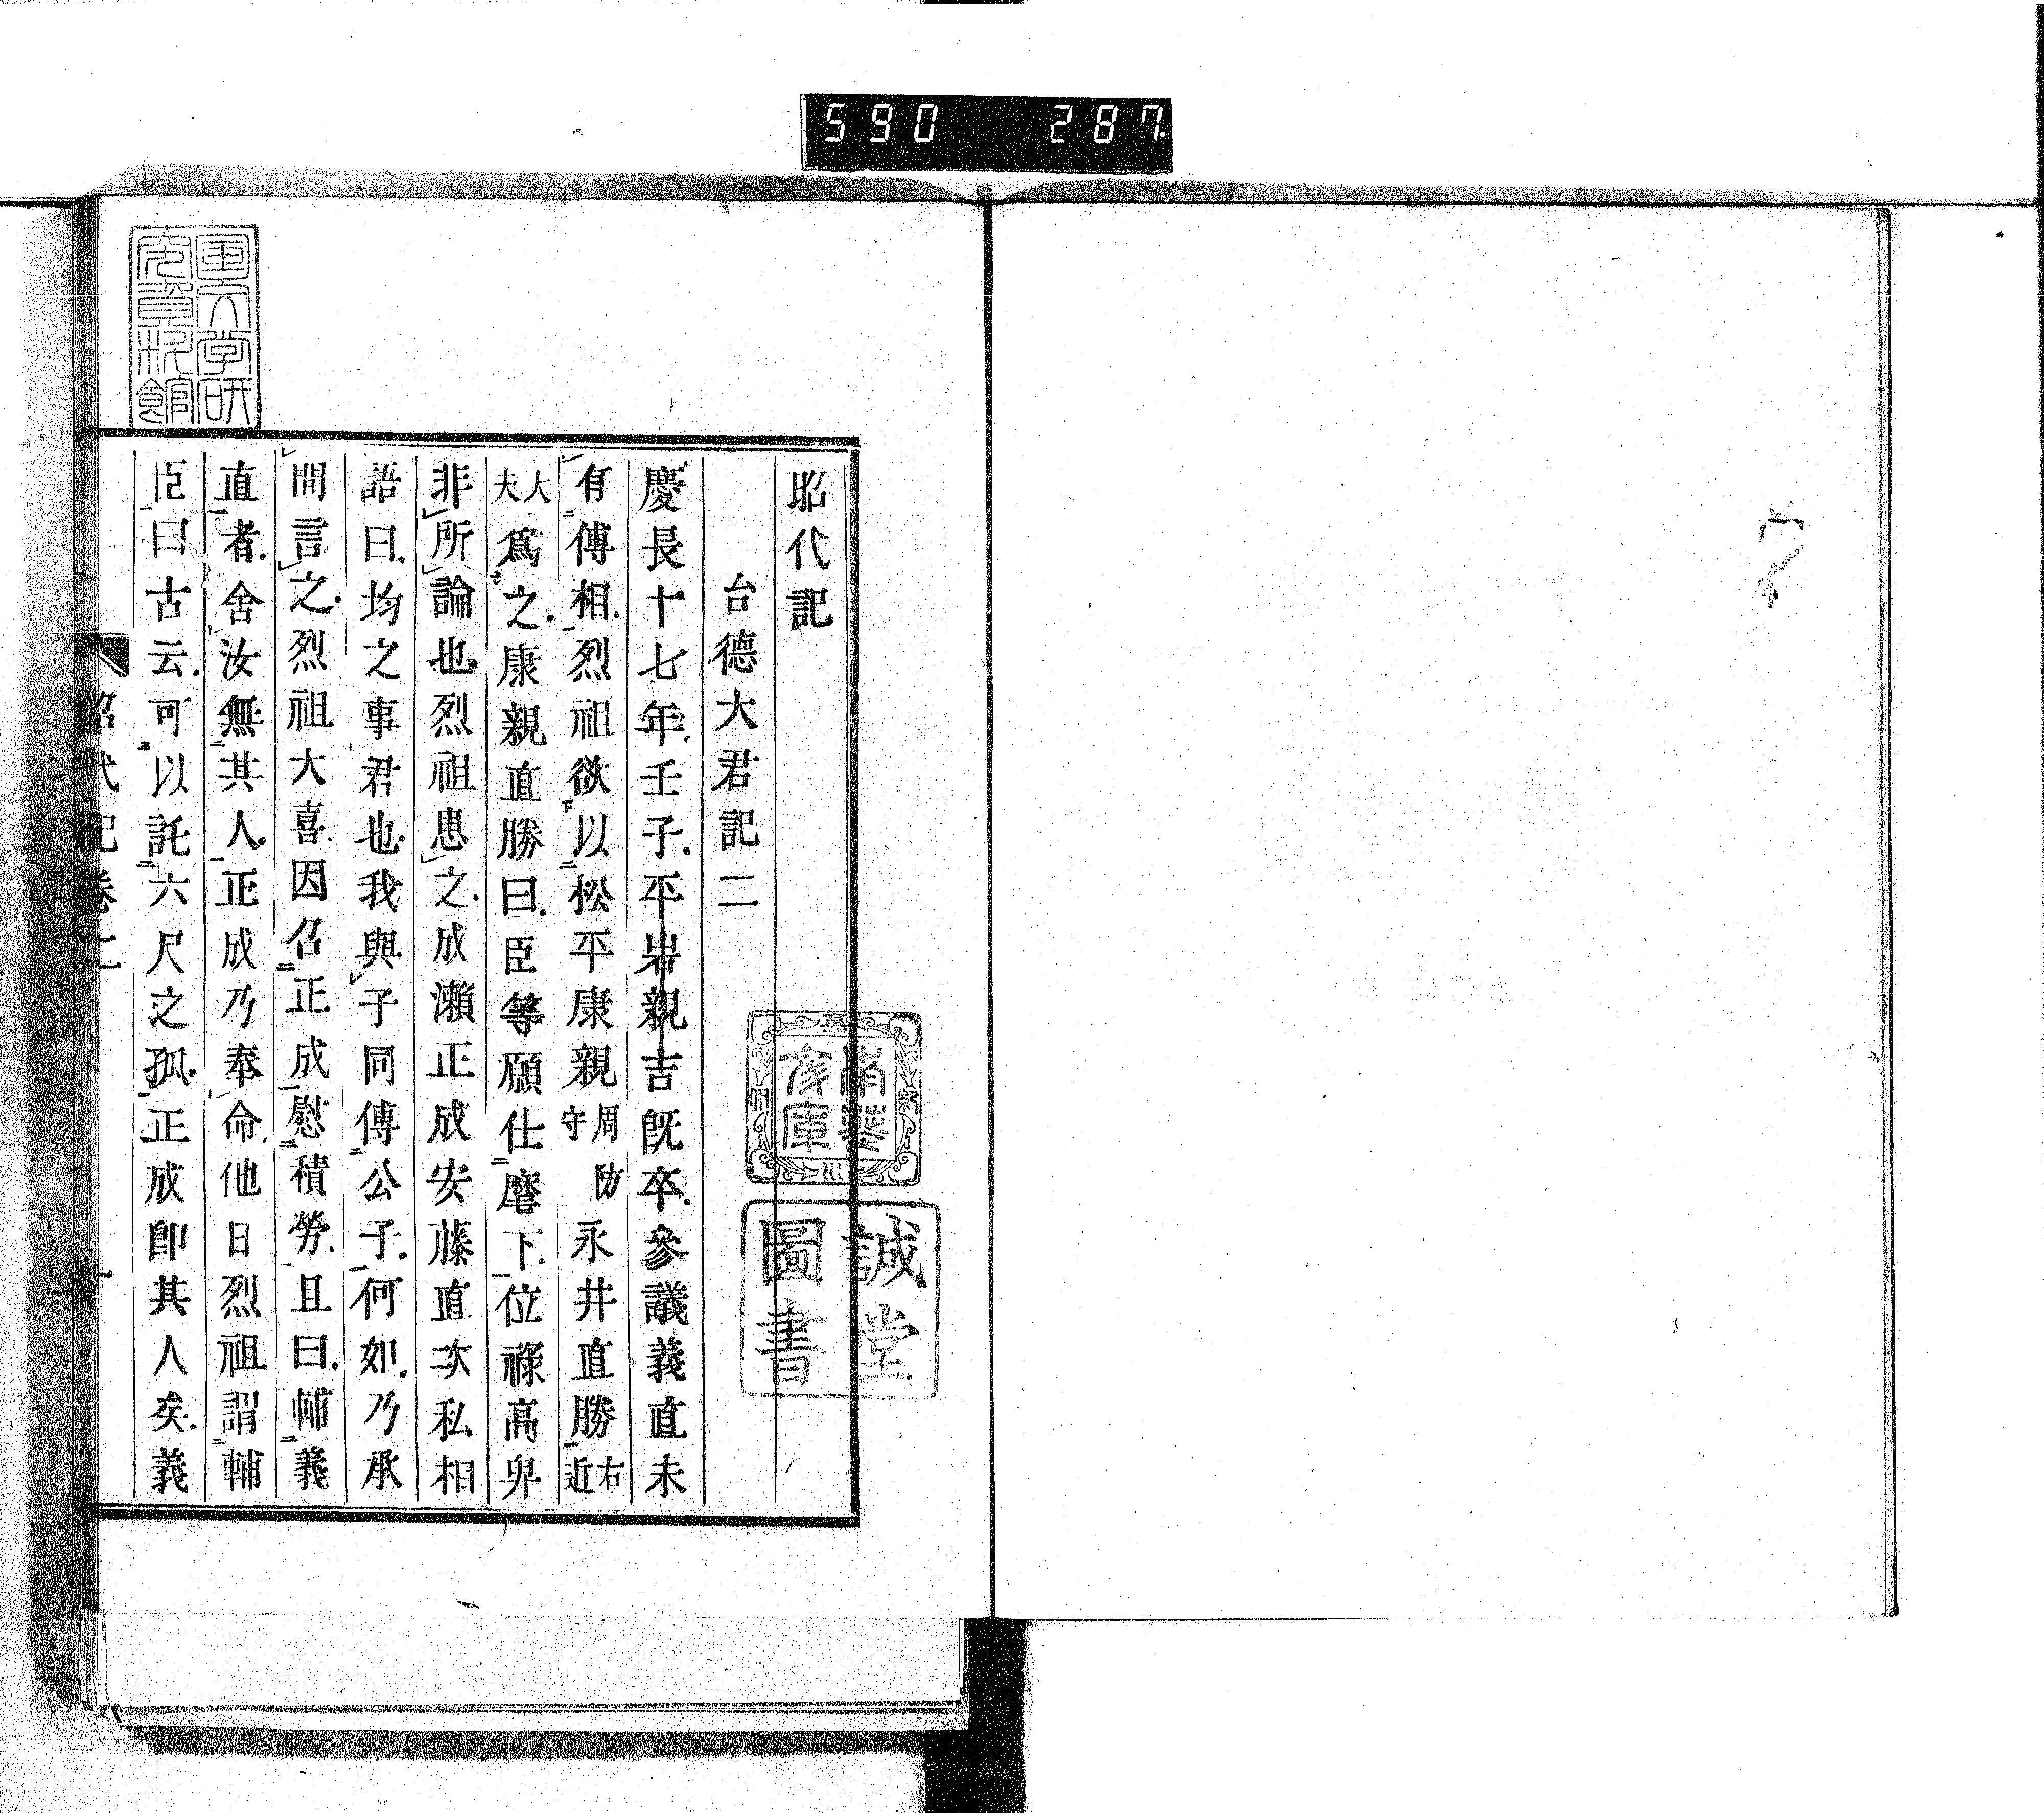 590 287
昭代記
台德大君記二
慶長十七年壬子平岩親吉既卒參議義直未
有傅相烈祖欲以松平康親周防守永井直勝右近
大夫爲之康親直勝曰臣等願仕麾下位祿高卑
非所論也烈祖患之成瀨正成安藤直次私相
語曰均之事君也我與子同傅公子何如乃承
間言之烈祖大喜因召正成慰積勞且曰輔義
直者舍汝無其人正成乃奉命他日烈祖謂輔
臣曰古云可以託六尺之孤正成卽其人矣義
昭代記卷二
一
誠堂
圖書